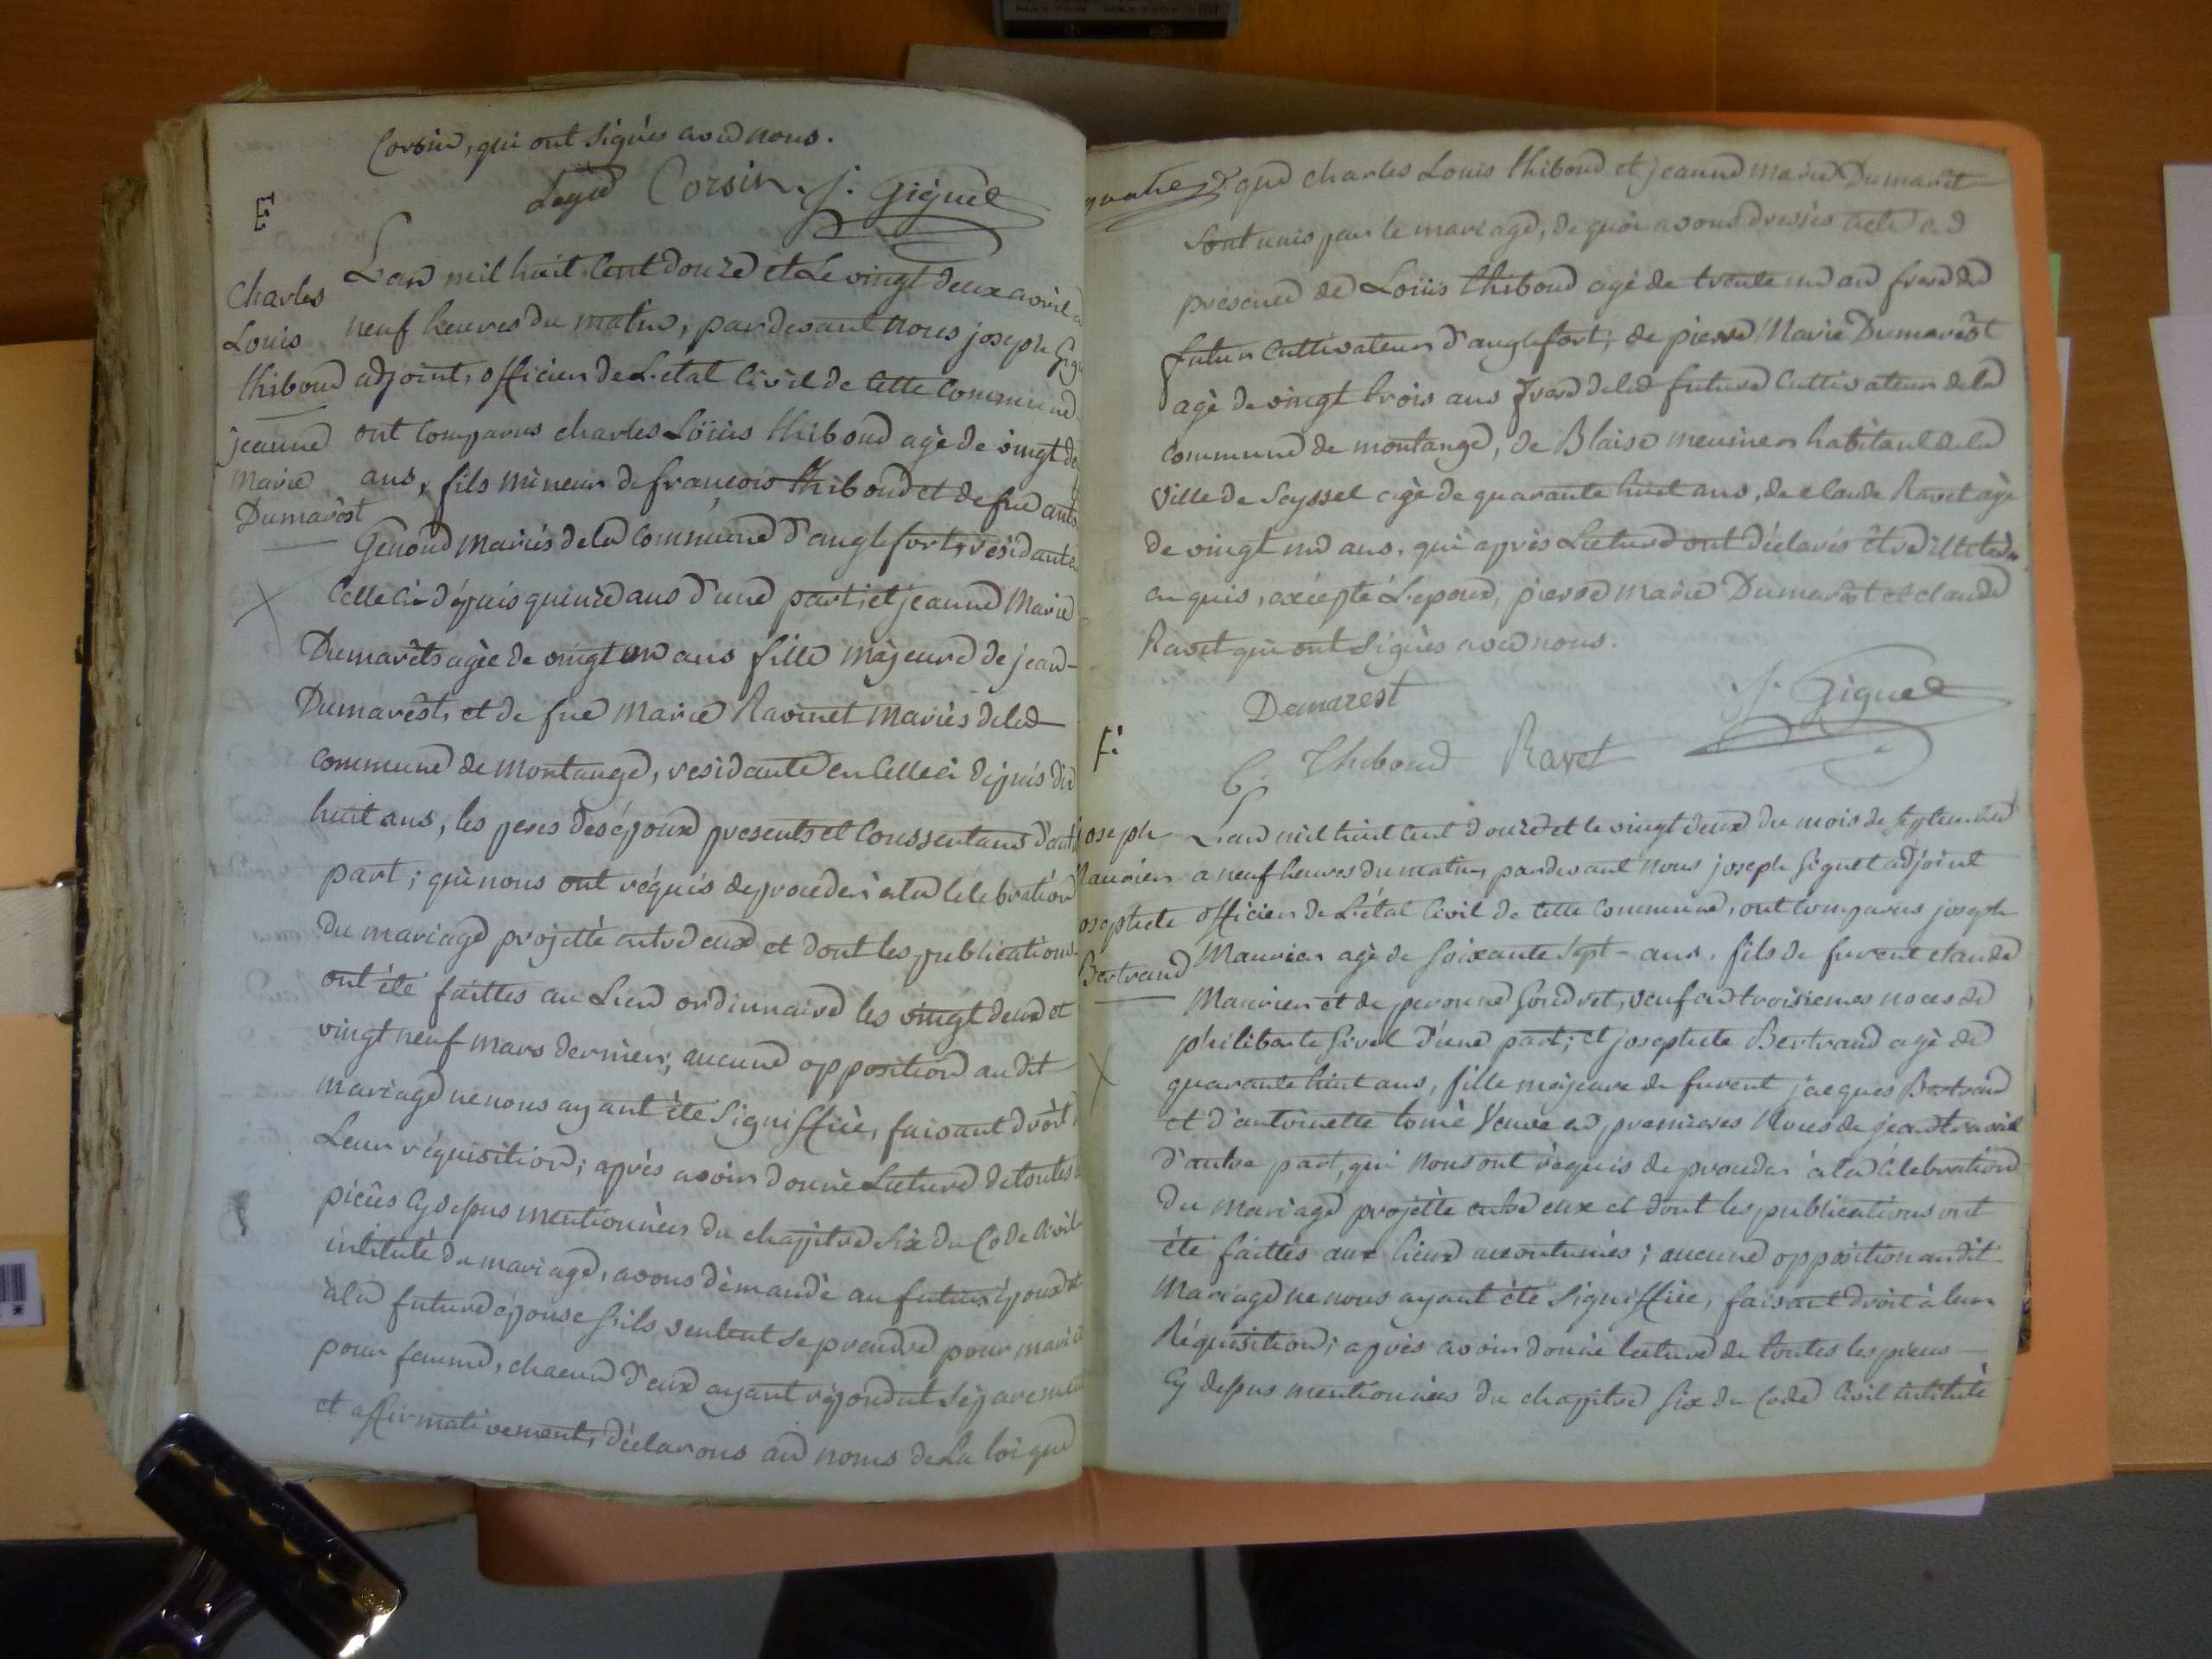 Corsin, qui ont signés avec nous.
Corsin. J. Giguet
E
Charles
Louis
thiboud
jeanne
Marie
Dumarêst
L'an mil huit cent douze et Le vingt deux avril a
neuf heures du matin, pardevant nous joseph
adjoint, officier de L'état Civil de Cette Commune
ont comparus charles Loüis thiboud agé de vingt
ans, fils mineur de françois thiboud et de feue
Genoud mariés de la Commune d'anglefort, résidant
Celle ci dépuis quinze ans d'une part; et jeanne Marie
Dumarêts agée de vingt un ans fille majeure de jean
Dumarêst, et de feue Marie Ravinet mariés de la
commune de montange, residante en Celle ci dépuis dix
huit ans, les peres des époux presents et Conssentans d'
part; qui nous ont réquis de proceder à la Célébration
du mariage projetté entre eux et dont les publications
ont été faittes au Lieu ordinnaire les vingt deux et
vingt neuf mars dernier; aucune opposition au dit
mariage ne nous ayant été signiffiée, faisant droit
Leur réquisition; après avoir donné Lecture de toutes
piéces cy dessus mentionnées du chappitre six du Code Civil
intitulé du mariage, avons démandé au futur époux et
à la future épouse s'ils veulent se prendre pour mari
pour femme, chacun d'eux ayant répondut séparement
et affirmativement, déclarons au noms de La loi que
que charles Louis thiboud et jeanne marie Dumarêt
sont unis par le mariage, de quoi avons dressés acte en
présence de Loüis thiboud agé de trente un an frere du
futur Cultivateur d'anglefort; de pierre Marie Dumarêst
agé de vingt trois ans frere de la future Cultivateur de la
commune de montange, de Blaise meunier habitant de la
ville de Seyssel agé de quarante huit ans, de claude Ravet agé
de vingt un ans, qui après Lecture ont déclarés être illitérés
enquis, excepté L'epoux, pierre marie Dumarêst et claude
Ravet qui ont signés avec nous.
Demarest J. Giguet
C. Thiboud Ravet
F.
joseph
Maurier
josephete
Bertrand
L'an mil huit cent douze et le vingt deux du mois de septembre
a neuf heures du matin, pardevant nous joseph Giguet adjoint
officier de L'état Civil de Cette Commune, ont comparus joseph
Maurier agé de soixante sept ans, fils de furent claude
Maurier et de peronne veuf en troisiemes noces de
philiberte d'une part; et josephete Bertrand agé de
quarante huit ans, fille majeure de furent jacques Bertrand
et d'antoinette veuve en premieres Noces de
d'autre part, qui nous ont réquis de proceder à la Célébration
du mariage projetté entre eux et dont les publications ont
été faittes aux lieux accoutumés; aucune opposition au dit
Mariage ne nous ayant été signiffiée, faisant droit à leur
Réquisition; après avoir donné lecture de toutes les pieces
cy dessus mentionnées du chappitre six du Code Civil intitulé